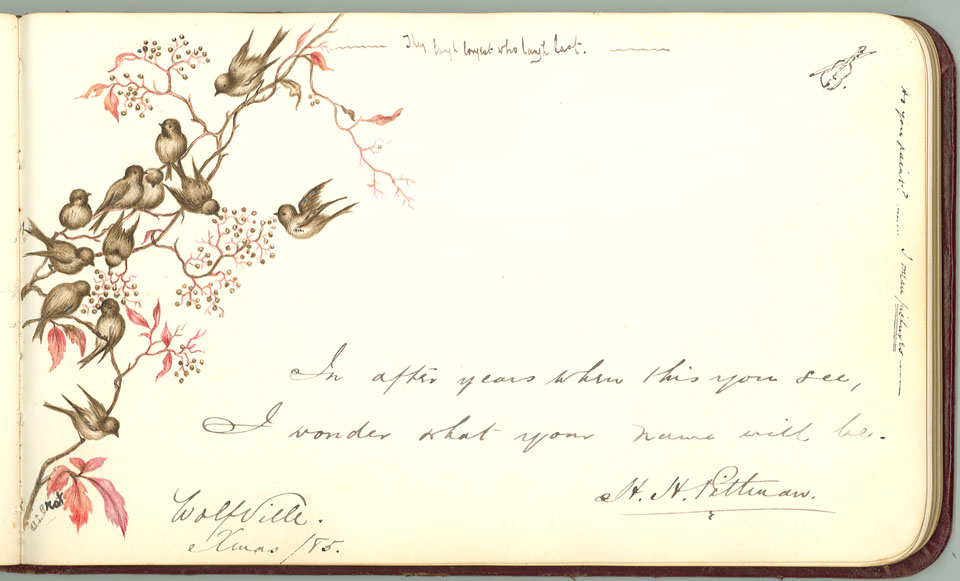 They laugh longest who laugh last.
Do you paint? I mean pictures
In after years when this you see,
I wonder what your name will be.
H. H. Pittman.
Wolfville.
Xmas /85.